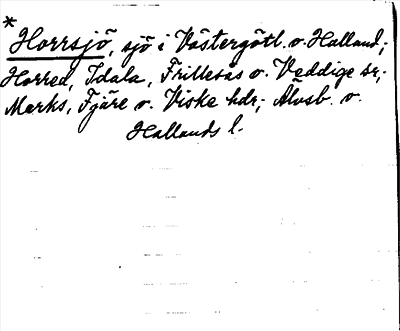 * Horrsjö, sjö i Västergötl. o. Halland;
Horred, Idala, Frillesås o. Veddige sr;
Marks, Fjäre o. Viske hdr; Älvsb. o.
Hallands l.